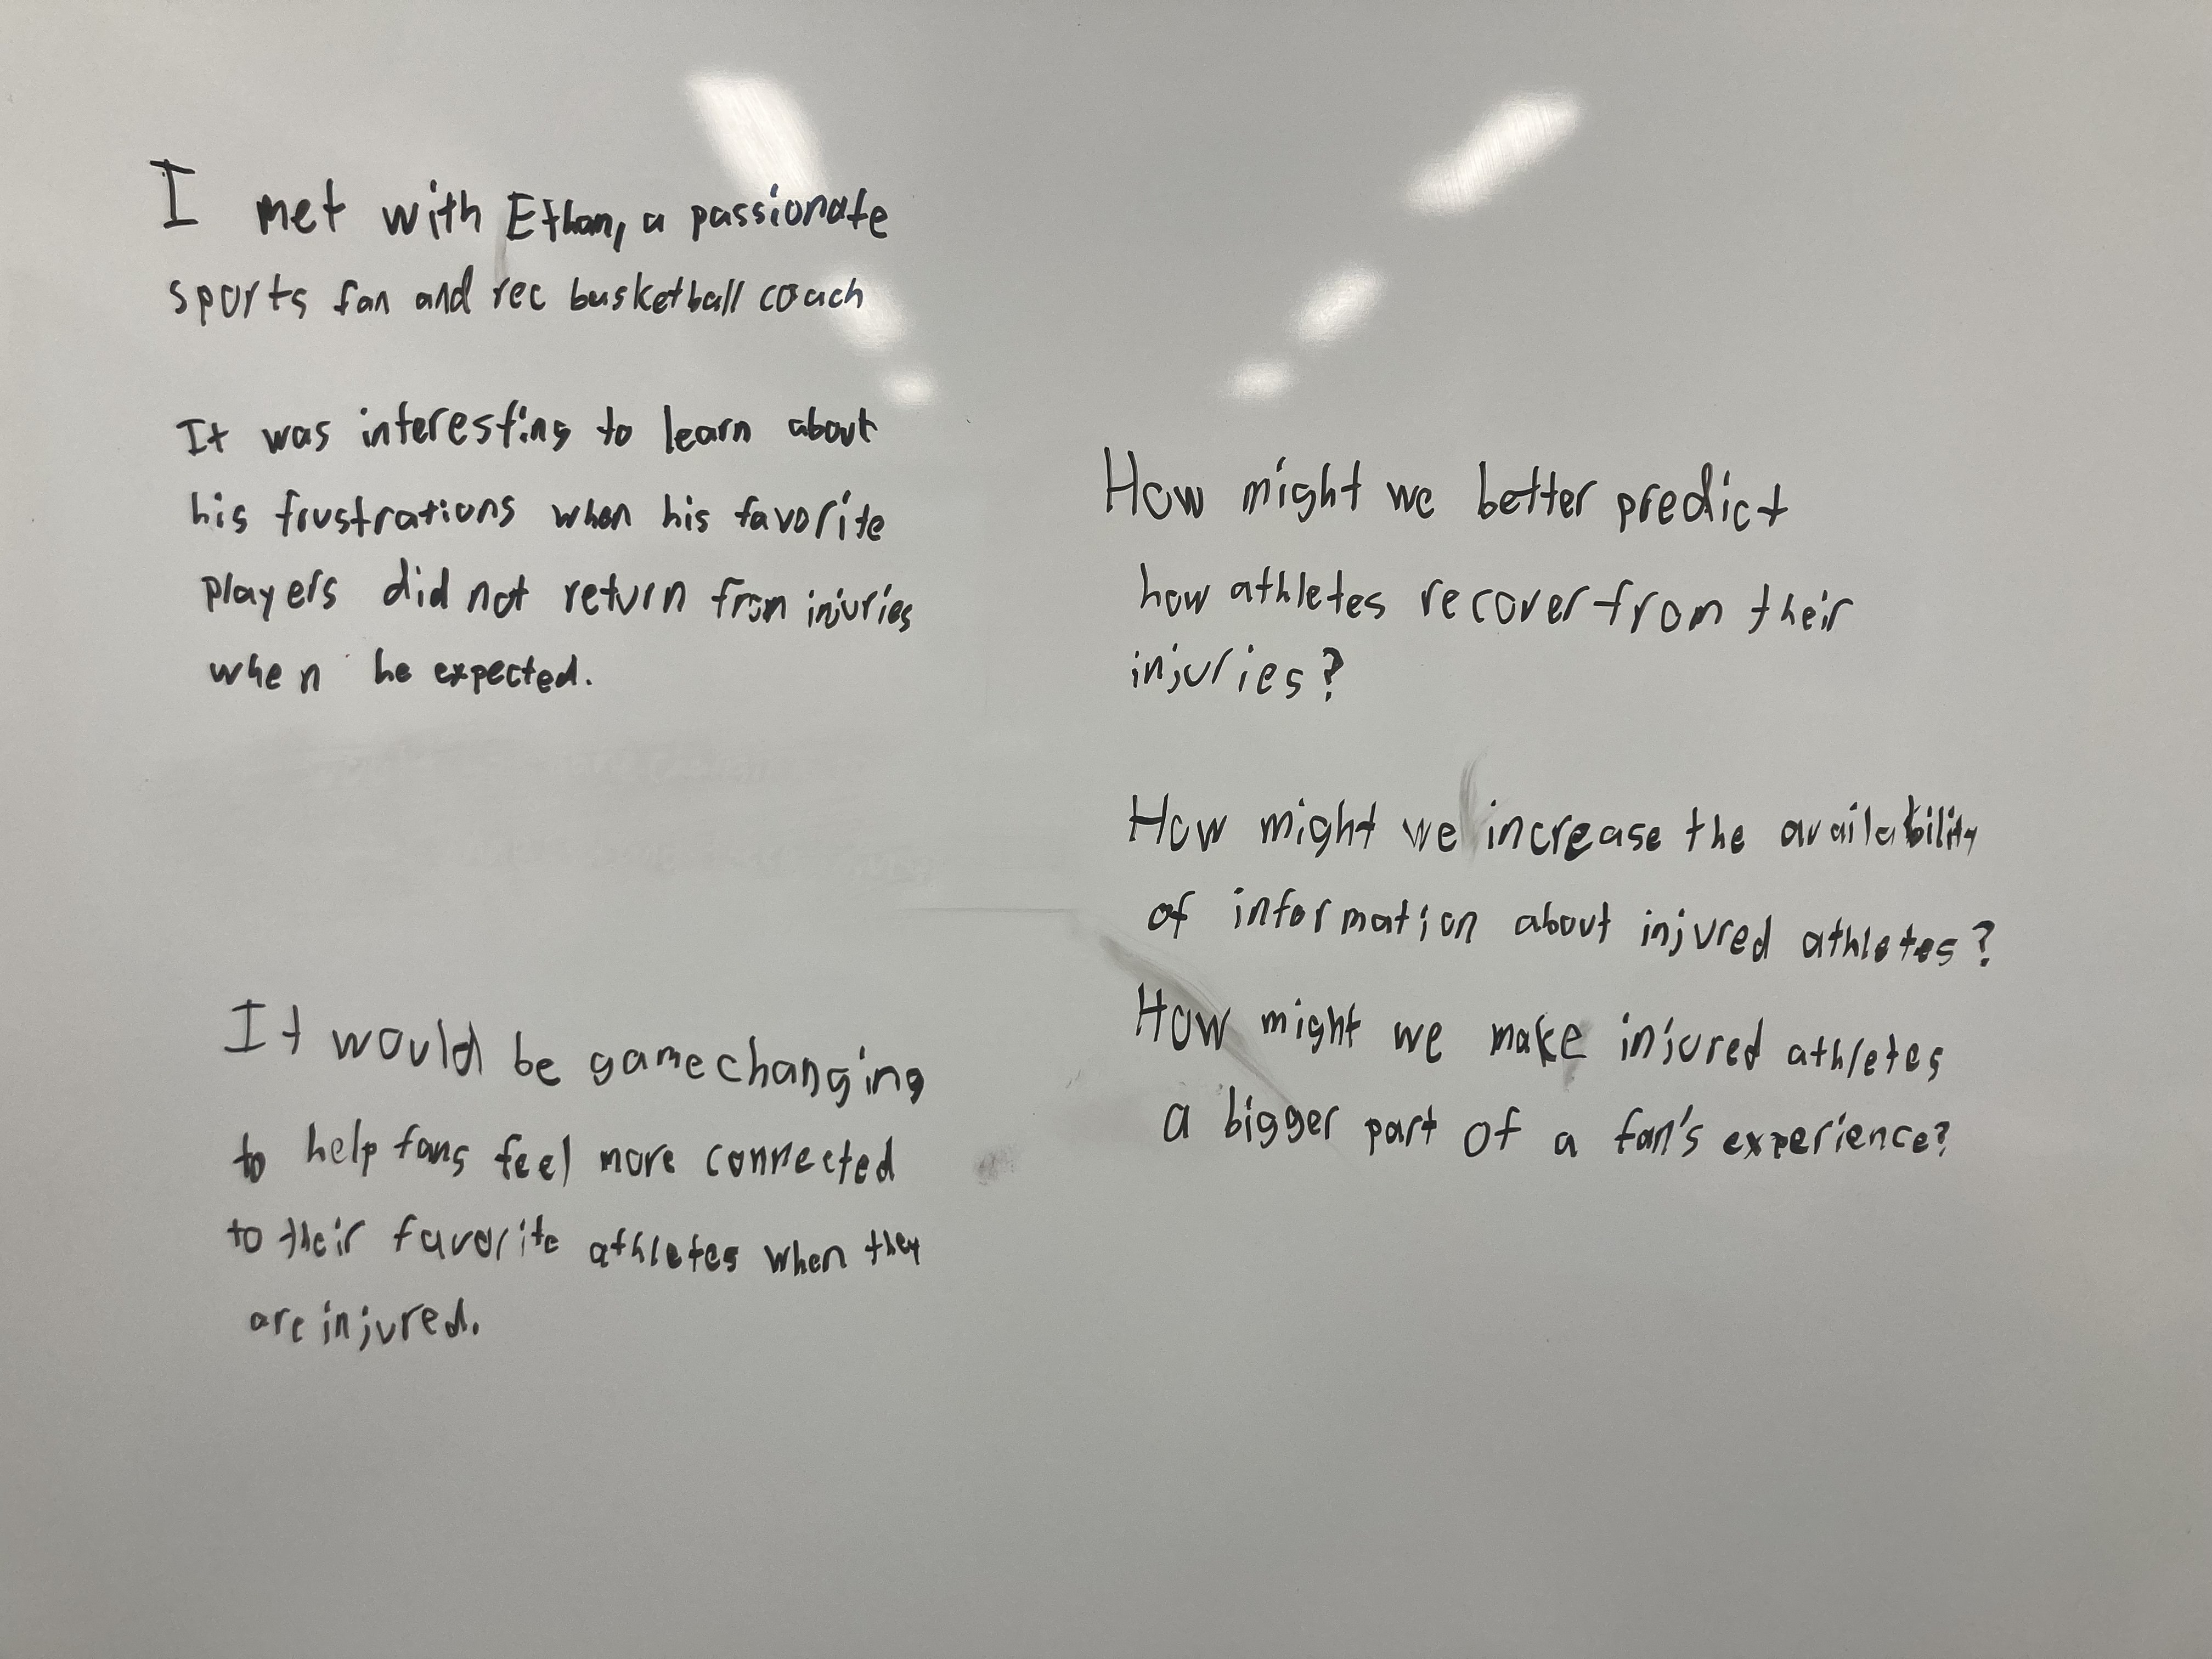 I met with Ethan, a passionate
sports fan and rec basketball coach
It was interesting to learn about
his frustrations when his favorite
players did not return from injuries
when he expected.
It would be gamechanging
to help fans feel more connected
to their favorite athletes when they
are injured.
How might we better predict
how athletes recover from their
injuries?
How might we increase the availability
of information about injured athletes?
How might we make injured athletes
a bigger part of a fan's experience?